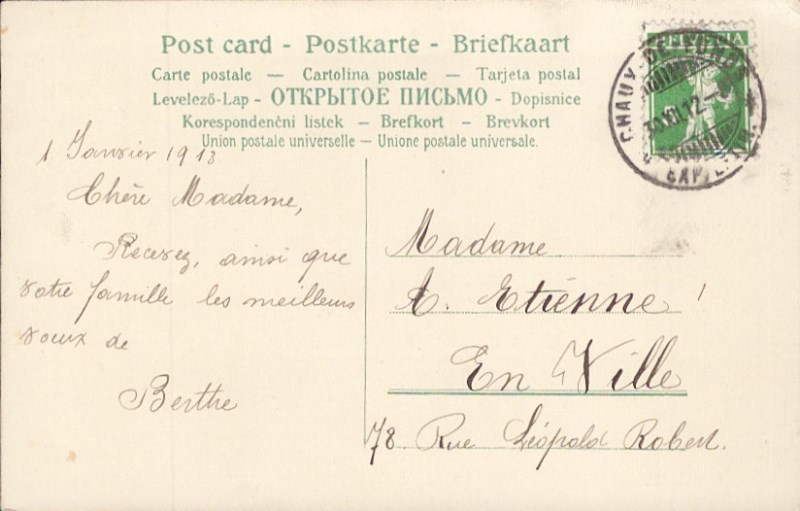 Post card - Postkarte - Briefkaart
Carte postale — Cartolina postale — Tarjeta postal
Levelező-Lap - ОТКРЫТОЕ ПИСЬМО - Dopisnice
Korespondenčni listek — Brefkort — Brevkort
Union postale universelle — Unione postale universale.
HELVETIA
CHAUX-DE-FONDS
30.XII.12
1 Janvier 1913
Chère Madame,
Recevez, ainsi que
votre famille les meilleurs
voeux de
Berthe
Madame
A. Etienne
En Ville
78. Rue Léopold Robert.